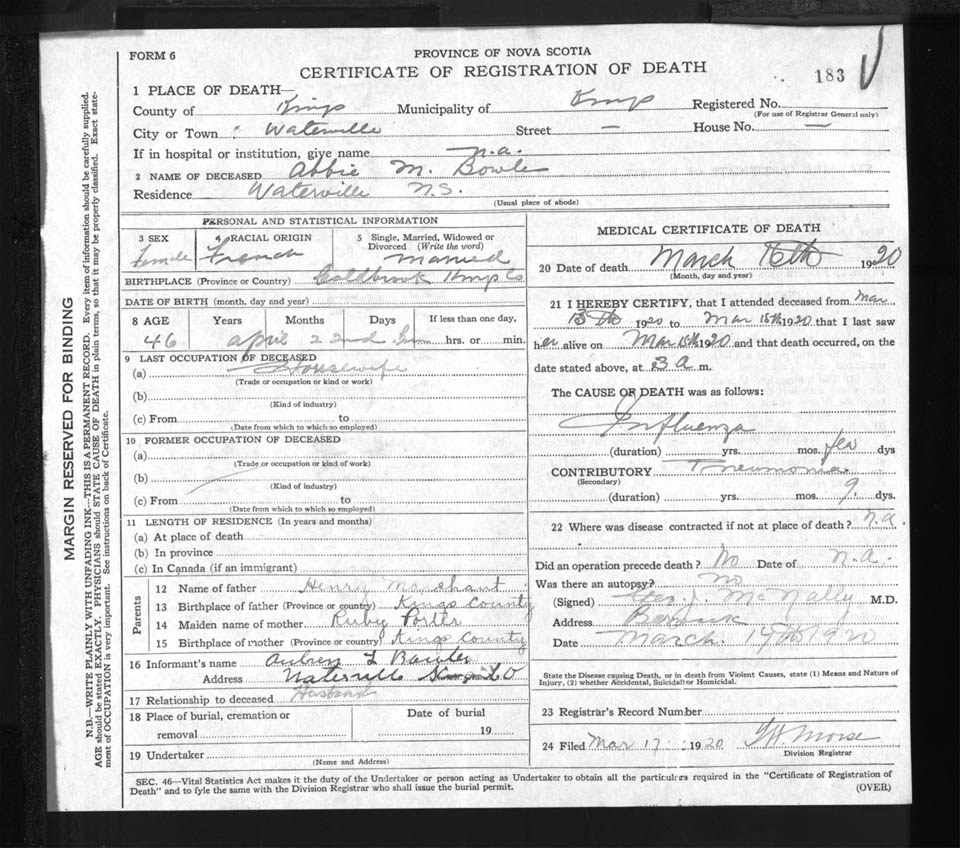 FORM 6
PROVINCE OF NOVA SCOTIA
CERTIFICATE OF REGISTRATION OF DEATH
183
1 PLACE OF DEATH—
County of Kings Municipality of Kings Registered No.
(For use of Registrar General only)
City or Town Waterville Street — House No. —
If in hospital or institution, give name n.a.
2 NAME OF DECEASED Abbie M. Bowles
Residence Waterville N.S.
(Usual place of abode)
PERSONAL AND STATISTICAL INFORMATION
3 SEX Female
4 RACIAL ORIGIN French
5 Single, Married, Widowed or Divorced (Write the word) Married
BIRTHPLACE (Province or Country) Coldbrook Kings Co
DATE OF BIRTH (month, day and year)
8 AGE Years Months Days If less than one day,
46 april 22nd hrs. or min.
9 LAST OCCUPATION OF DECEASED
(a) Housewife
(Trade or occupation or kind or work)
(b)
(Kind of industry)
(c) From to
(Date from which to which so employed)
10 FORMER OCCUPATION OF DECEASED
(a)
(Trade or occupation or kind of work)
(b)
(Kind of industry)
(c) From to
(Date from which to which so employed)
11 LENGTH OF RESIDENCE (In years and months)
(a) At place of death
(b) In province
(c) In Canada (if an immigrant)
Parents
12 Name of father Henry Marchant
13 Birthplace of father (Province or country) Kings County
14 Maiden name of mother Ruby Porter
15 Birthplace of mother (Province or country) Kings County
16 Informant's name Aubrey L
Address Waterville Kings CO
17 Relationship to deceased Husband
18 Place of burial, cremation or removal
Date of burial
19
19 Undertaker
(Name and Address)
MEDICAL CERTIFICATE OF DEATH
20 Date of death March 16th 1920
(Month, day and year)
21 I HEREBY CERTIFY, that I attended deceased from Mar
15th 1920 to Mar 15th 1920 that I last saw
her alive on Mar 15th 1920 and that death occurred, on the
date stated above, at 3 a m.
The CAUSE OF DEATH was as follows:
Influenza
(duration) yrs. mos. few dys
CONTRIBUTORY Pneumonia
(Secondary)
(duration) yrs. mos. 9 dys.
22 Where was disease contracted if not at place of death? n.a.
Did an operation precede death? No Date of n.a.
Was there an autopsy? no
(Signed) Geo. J. McNally M.D.
Address Berwick
Date March 17th 1920
State the Disease causing Death, or in death from Violent Causes, state (1) Means and Nature of
Injury, (2) whether Accidental, Suicidal or Homicidal.
23 Registrar's Record Number
24 Filed Mar 17 1920 Morse
Division Registrar
SEC. 46—Vital Statistics Act makes it the duty of the Undertaker or person acting as Undertaker to obtain all the particulars required in the "Certificate of Registration of
Death" and to fyle the same with the Division Registrar who shall issue the burial permit.
(OVER)
MARGIN RESERVED FOR BINDING
N.B.—WRITE PLAINLY WITH UNFADING INK—THIS IS A PERMANENT RECORD. Every item of information should be carefully supplied.
AGE should be stated EXACTLY. PHYSICIANS should STATE CAUSE OF DEATH in plain terms, so that it may be properly classified. Exact state-
ment of OCCUPATION is very important. See instructions on back of Certificate.